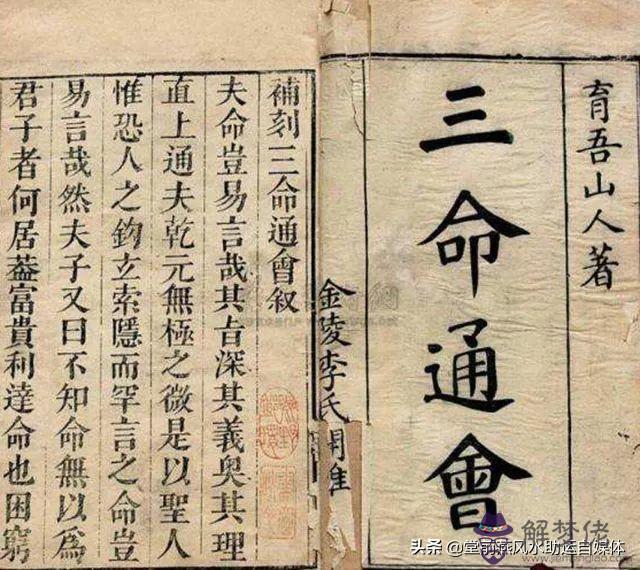 育吾山人著
三命通會
金陵李氏
補刻三命通會叙
夫命豈易言哉其㫖深其義奧其理
直上通夫乾元無極之微是以聖人
惟恐人之鈎玄索隱而罕言之命豈
易言哉然夫子又曰不知命無以為
君子者何居葢富貴利達命也困窮
解梦佬
头条 @堂前燕风水助运自媒体